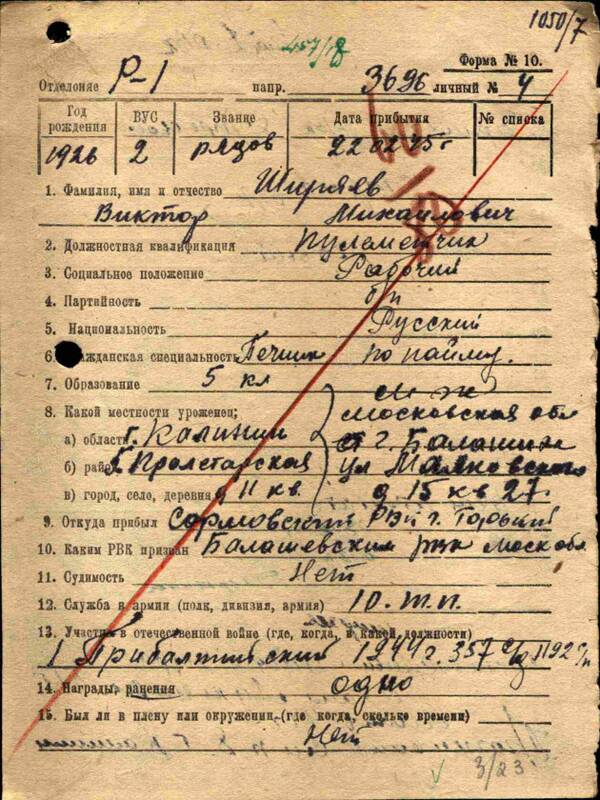 1050/7
457/18
Форма № 10.
Отделоняе Р-1 напр. 3696 личный № 4
Год рождения ВУС Звание Дата прибытия № списка
1926 2 рядов 22 02 45 г
1. Фамилия, имя и отчество Ширяев
Виктор Михаилович
2. Должностная квалификация пулеметчик
3. Социальное положение Рабочий
4. Партийность б/п
5. Национальность Русский
6. жданская специальность Печник по найму.
7. Образование 5 кл
8. Какой местности уроженец; м ж
Московская обл
а) област г. Калинин г. Балашиха
б) рай Пролетарская ул Маяковского
в) город, село, деревня д 11 кв. д 15 кв 27.
9. Откуда прибыл Сормовский РВК г. Горький
10. Каким РВК призван Балашевским рвк моск обл.
11. Судимость Нет
12. Служба в армии (полк, дивизия, армия) 10. т.п.
13. Участие в отечественной войне (где, когда, и какой должности)
1 Прибалтийский 1944 г. 357 с/д 1192 с/п
14. Награды, ранения одно
15. Был ли в плену или окружении (где когда, сколько времени)
Нет
3/23